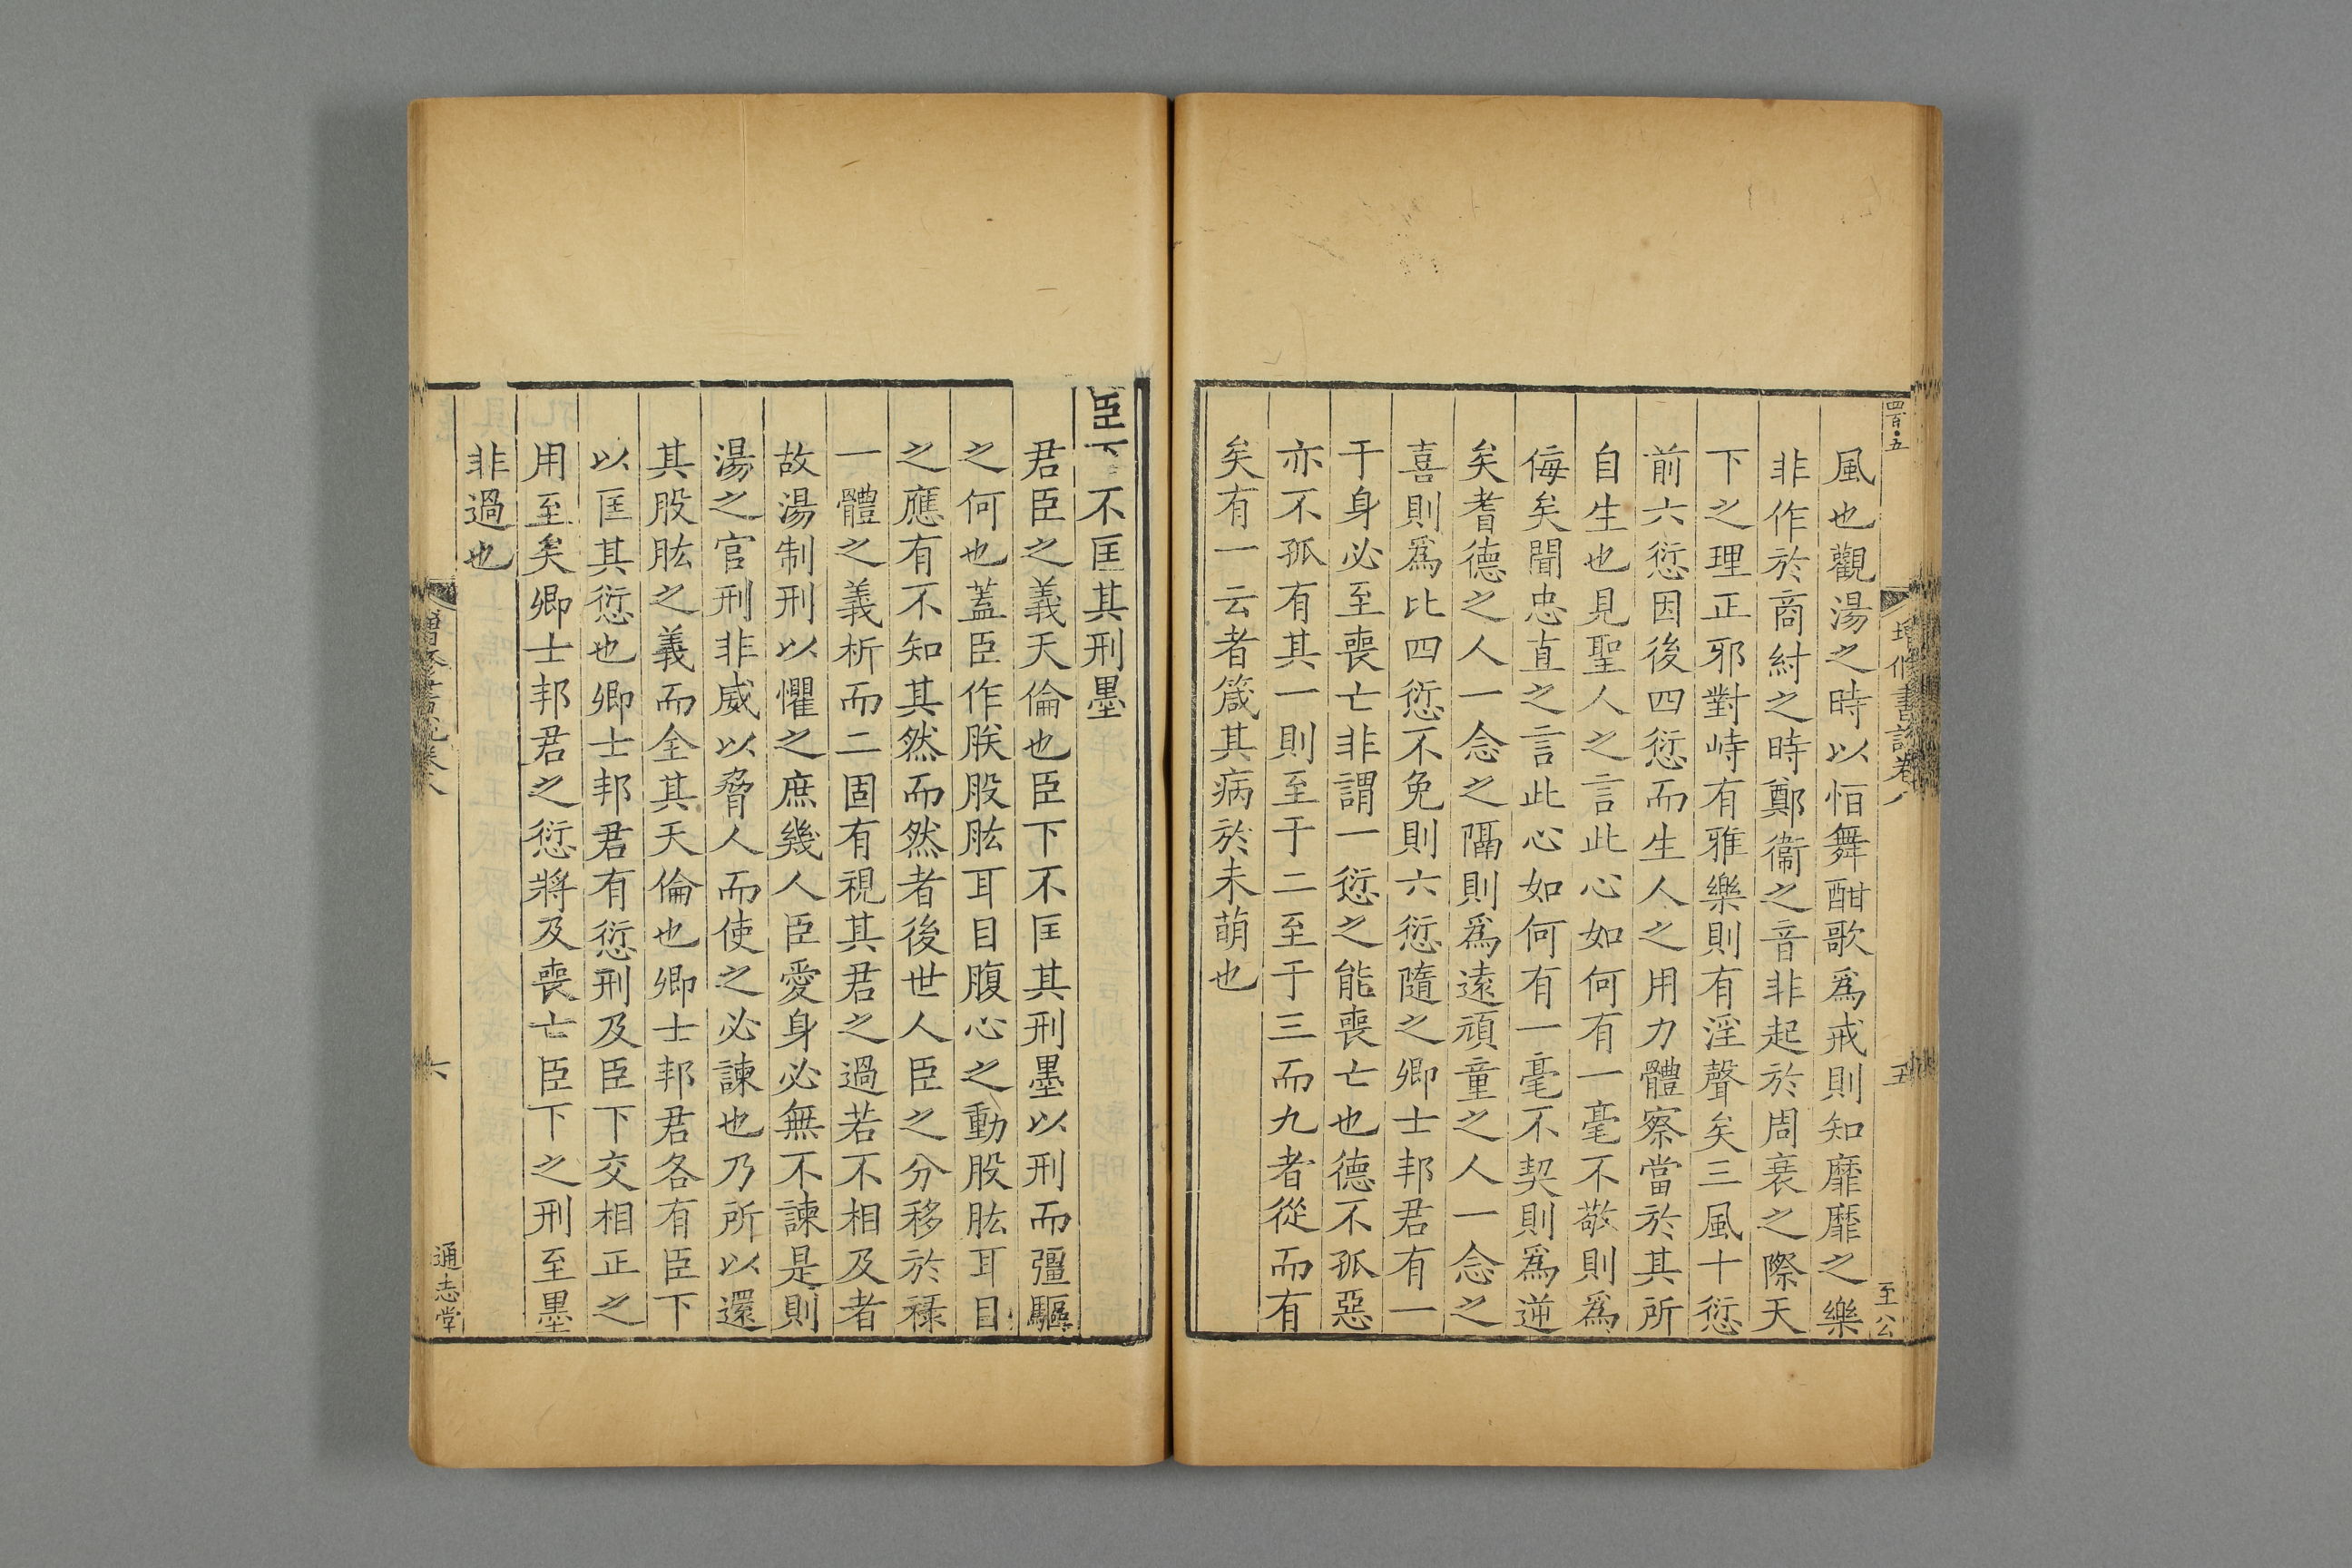 四百〇五
增修書說卷八
五
至公
風也觀湯之時以恒舞酣歌爲戒則知靡靡之樂
非作於商紂之時鄭衞之音非起於周衰之際天
下之理正邪對峙有雅樂則有淫聲矣三風十愆
前六愆因後四愆而生人之用力體察當於其所
自生也見聖人之言此心如何有一毫不敬則爲
侮矣聞忠直之言此心如何有一毫不契則爲逆
矣耆德之人一念之隔則爲遠頑童之人一念之
喜則爲比四愆不免則六愆隨之卿士邦君有一
于身必至喪亡非謂一愆之能喪亡也德不孤惡
亦不孤有其一則至于二至于三而九者從而有
矣有一云者箴其病於未萌也
臣下不匡其刑墨
君臣之義天倫也臣下不匡其刑墨以刑而彊驅
之何也蓋臣作朕股肱耳目腹心之動股肱耳目
之應有不知其然而然者後世人臣之分移於祿
一體之義析而二固有視其君之過若不相及者
故湯制刑以懼之庶幾人臣愛身必無不諫是則
湯之官刑非威以脅人而使之必諫也乃所以還
其股肱之義而全其天倫也卿士邦君各有臣下
以匡其愆也卿士邦君有愆刑及臣下交相正之
用至矣卿士邦君之愆將及喪亡臣下之刑至墨
非過也
增修書說卷八
六
通志堂